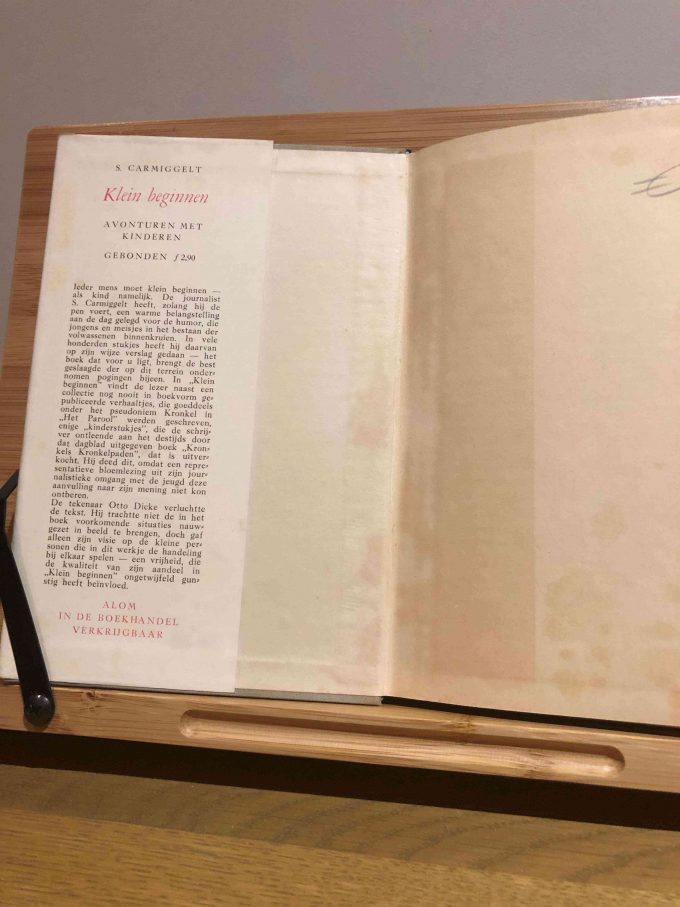 S. CARMIGGELT
Klein beginnen
AVONTUREN MET
KINDEREN
GEBONDEN ƒ 2,90
Ieder mens moet klein beginnen —
als kind namelijk. De journalist
S. Carmiggelt heeft, zolang hij de
pen voert, een warme belangstelling
aan de dag gelegd voor de humor, die
jongens en meisjes in het bestaan der
volwassenen binnenkruien. In vele
honderden stukjes heeft hij daarvan
op zijn wijze verslag gedaan — het
boek dat voor u ligt, brengt de best
geslaagde der op dit terrein onder-
nomen pogingen bijeen. In „Klein
beginnen” vindt de lezer naast een
collectie nog nooit in boekvorm ge-
publiceerde verhaaltjes, die goeddeels
onder het pseudoniem Kronkel in
„Het Parool” werden geschreven,
enige „kinderstukjes”, die de schrij-
ver ontleende aan het destijds door
dat dagblad uitgegeven boek „Kron-
kels Kronkelpaden”, dat is uitver-
kocht. Hij deed dit, omdat een repre-
sentatieve bloemlezing uit zijn jour-
nalistieke omgang met de jeugd deze
aanvulling naar zijn mening niet kon
ontberen.
De tekenaar Otto Dicke verluchtte
de tekst. Hij trachtte niet de in het
boek voorkomende situaties nauw-
gezet in beeld te brengen, doch gaf
alleen zijn visie op de kleine per-
sonen die in dit werkje de handeling
bij elkaar spelen — een vrijheid, die
de kwaliteit van zijn aandeel in
„Klein beginnen” ongetwijfeld gun-
stig heeft beïnvloed.
ALOM
IN DE BOEKHANDEL
VERKRIJGBAAR